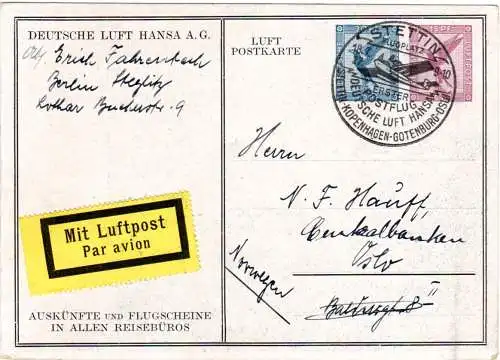 DEUTSCHE LUFT HANSA A.G.
Erich Fahrenbach
Berlin Steglitz
Lothar Bucherstr. 9
LUFT
POSTKARTE
STETTIN
FLUGPLATZ
ERSTER
POSTFLUG
DEUTSCHE LUFT HANSA
KOPENHAGEN-GOTENBURG-OSLO
Herrn
N. F. Hauff,
Centralbanken
Oslo
Norwegen
II
Mit Luftpost
Par avion
AUSKÜNFTE UND FLUGSCHEINE
IN ALLEN REISEBÜROS